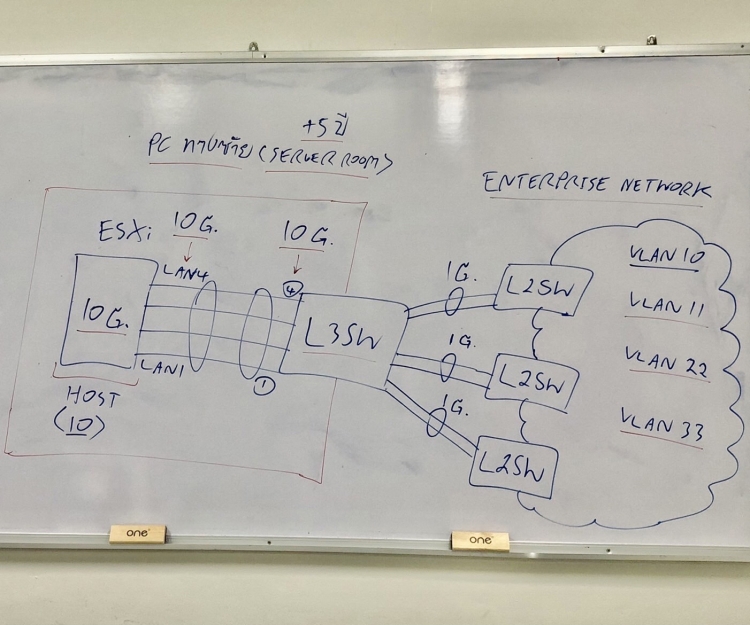 +5 ปี
PC ทางซ้าย (SERVER ROOM)
ENTERPRISE NETWORK
ESXi
10G.
10G.
LAN4
4
10G.
LAN1
1
HOST
(10)
L3SW
1G.
1G.
1G.
L2SW
L2SW
L2SW
VLAN 10
VLAN 11
VLAN 22
VLAN 33
one
one